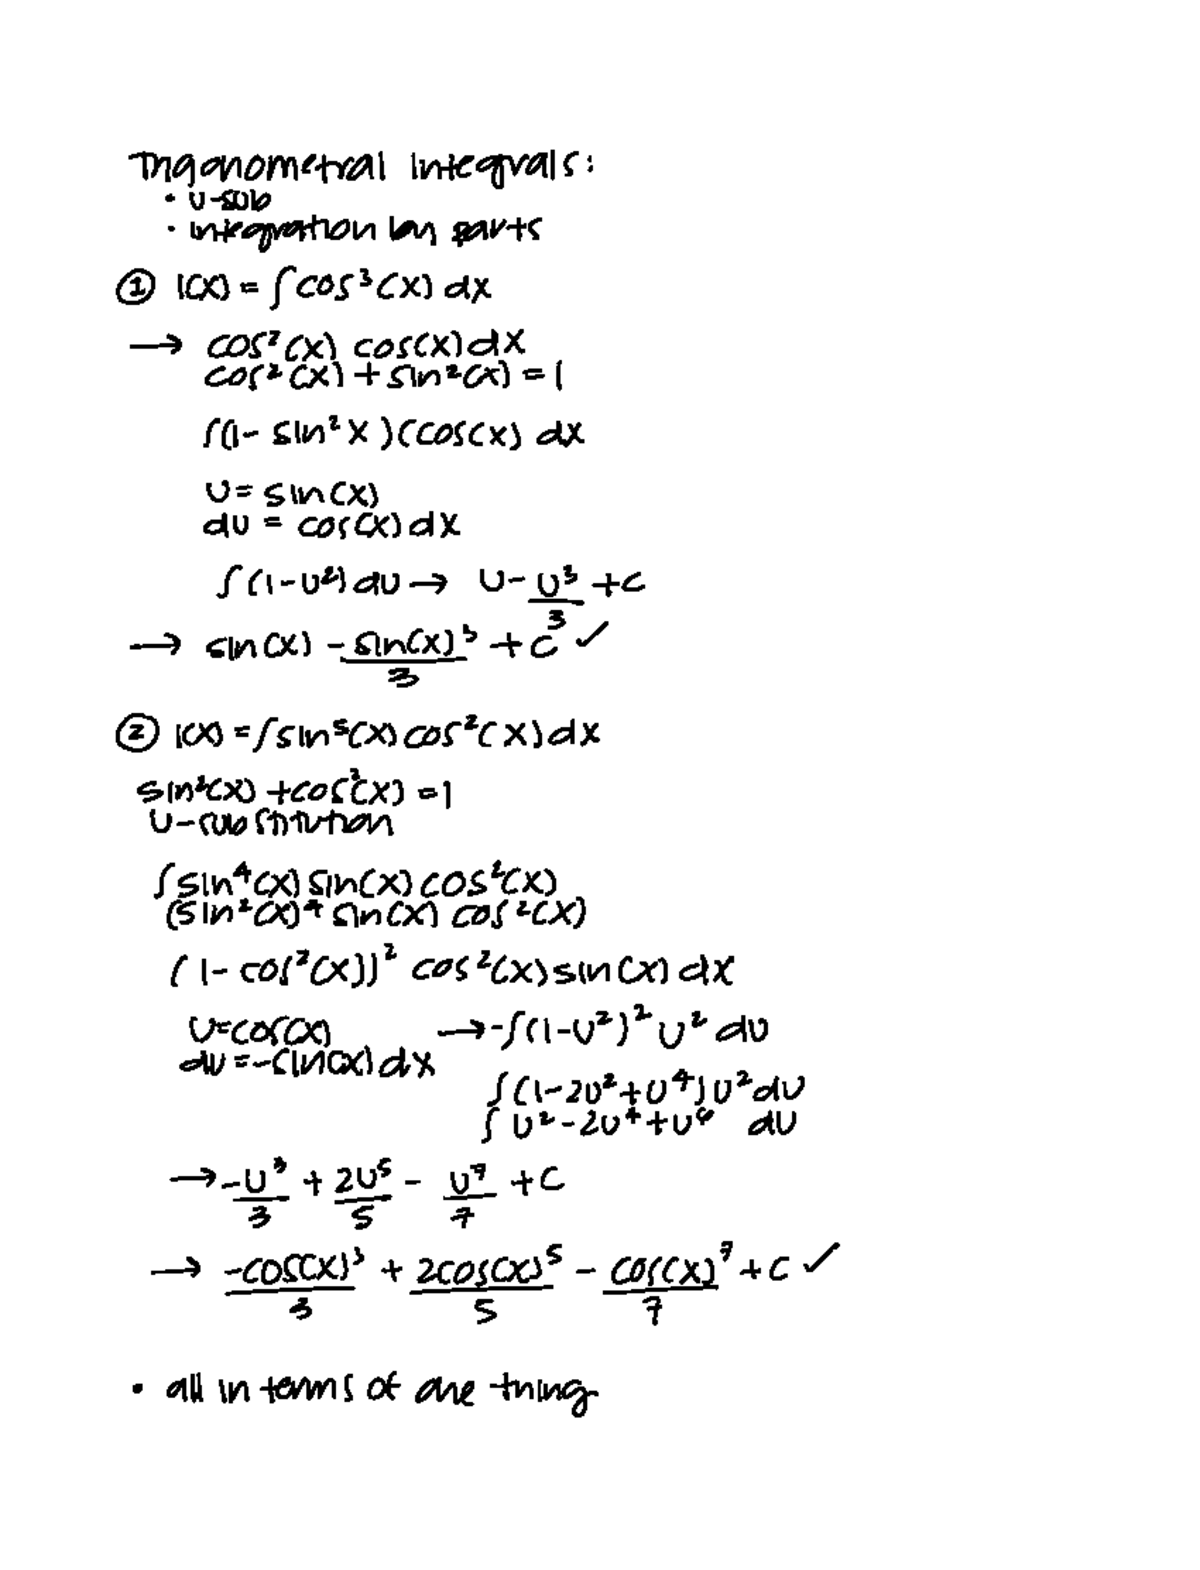 Trigonometral Integrals:
• u-sub
• integration by parts
① I(x) = ∫cos³(x) dx
→ cos²(x) cos(x) dx
cos²(x) + sin²(x) = 1
∫(1- sin²x)(cos(x) dx
u = sin(x)
du = cos(x) dx
∫(1-u²) du → u - u³/3 + c
→ sin(x) - sin(x)³/3 + c³ ✓
② I(x) = ∫sin⁵(x) cos²(x) dx
sin²(x) + cos²(x) = 1
u-substitution
∫sin⁴(x) sin(x) cos²(x)
(sin²(x)⁴ sin(x) cos²(x)
(1- cos²(x))² cos²(x) sin(x) dx
u=cos(x) → -∫(1-u²)² u² du
du = -sin(x) dx
∫(1-2u²+u⁴) u² du
∫ u²-2u⁴+u⁶ du
→ -u³/3 + 2u⁵/5 - u⁷/7 + c
→ -cos(x)³/3 + 2cos(x)⁵/5 - cos(x)⁷/7 + c ✓
• all in terms of one thing